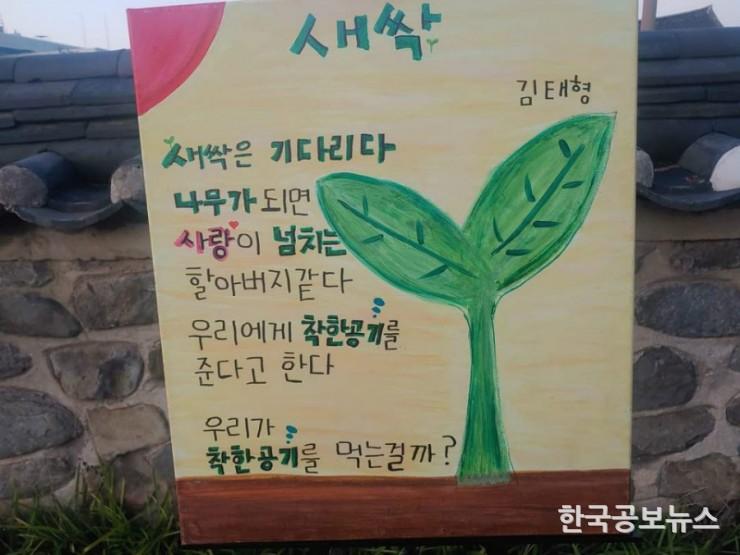 새싹
김태형
새싹은 기다리다
나무가 되면
사랑이 넘치는
할아버지같다
우리에게 착한공기를
준다고 한다
우리가
착한공기를 먹는걸까?
한국공보뉴스